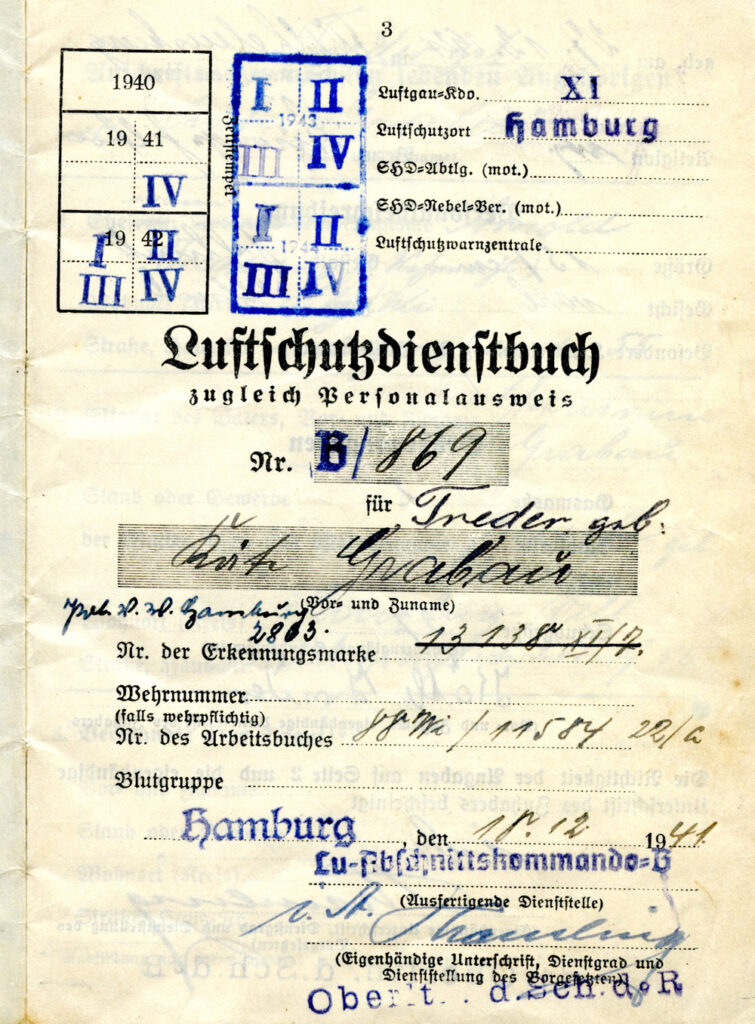 3
1940
19 41
IV
19 42
I II
III IV
Zeitstempel
I II
1943
III IV
I II
1944
III IV
Luftgau-Kdo. XI
Luftschutzort Hamburg
SHD-Abtlg. (mot.)
SHD-Nebel-Ber. (mot.)
Luftschutzwarnzentrale
Luftschutzdienstbuch
zugleich Personalausweis
Nr. B/869
für Treder geb:
Käte Grabau
(Vor- und Zuname)
Hamburg
2803.
Nr. der Erkennungsmarke 13 138 XI/7.
Wehrnummer
(falls wehrpflichtig)
Nr. des Arbeitsbuches /11584 22/a
Blutgruppe
Hamburg, den 18.12 1941.
Lu-Abschnittskommando-B
(Ausfertigende Dienststelle)
(Eigenhändige Unterschrift, Dienstgrad und
Dienststellung des Vorgesetzten)
Oberlt. d.Sch.d.R